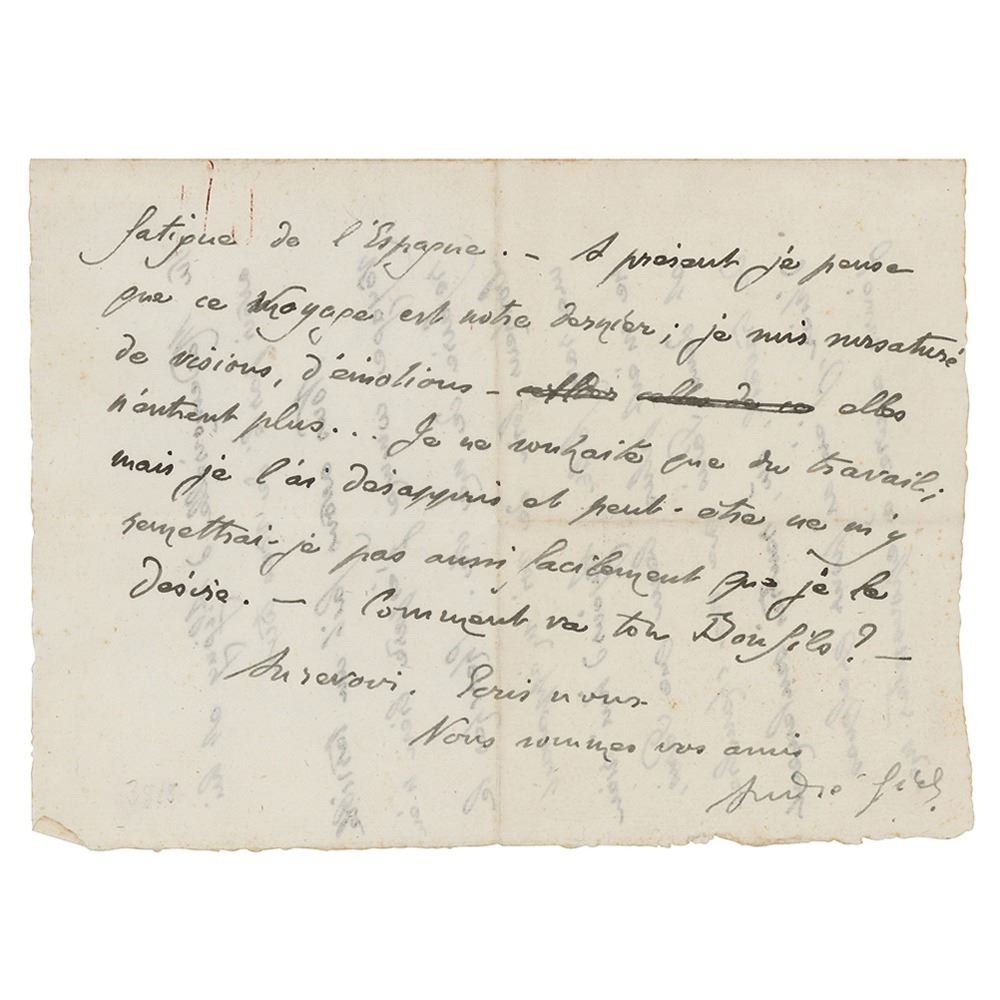 fatigue de l'Espagne. — A présent je pense
que ce voyage est notre dernier ; je suis sursaturé
de visions, d'émotions — elles
n'entrent plus... Je ne souhaite que du travail ;
mais je l'ai désappris et peut-être ne m'y
remettrai-je pas aussi facilement que je le
désire. — Comment va ton Bonfils ? —
Aurevoir. Ecris nous
Nous sommes vos amis
André Gide